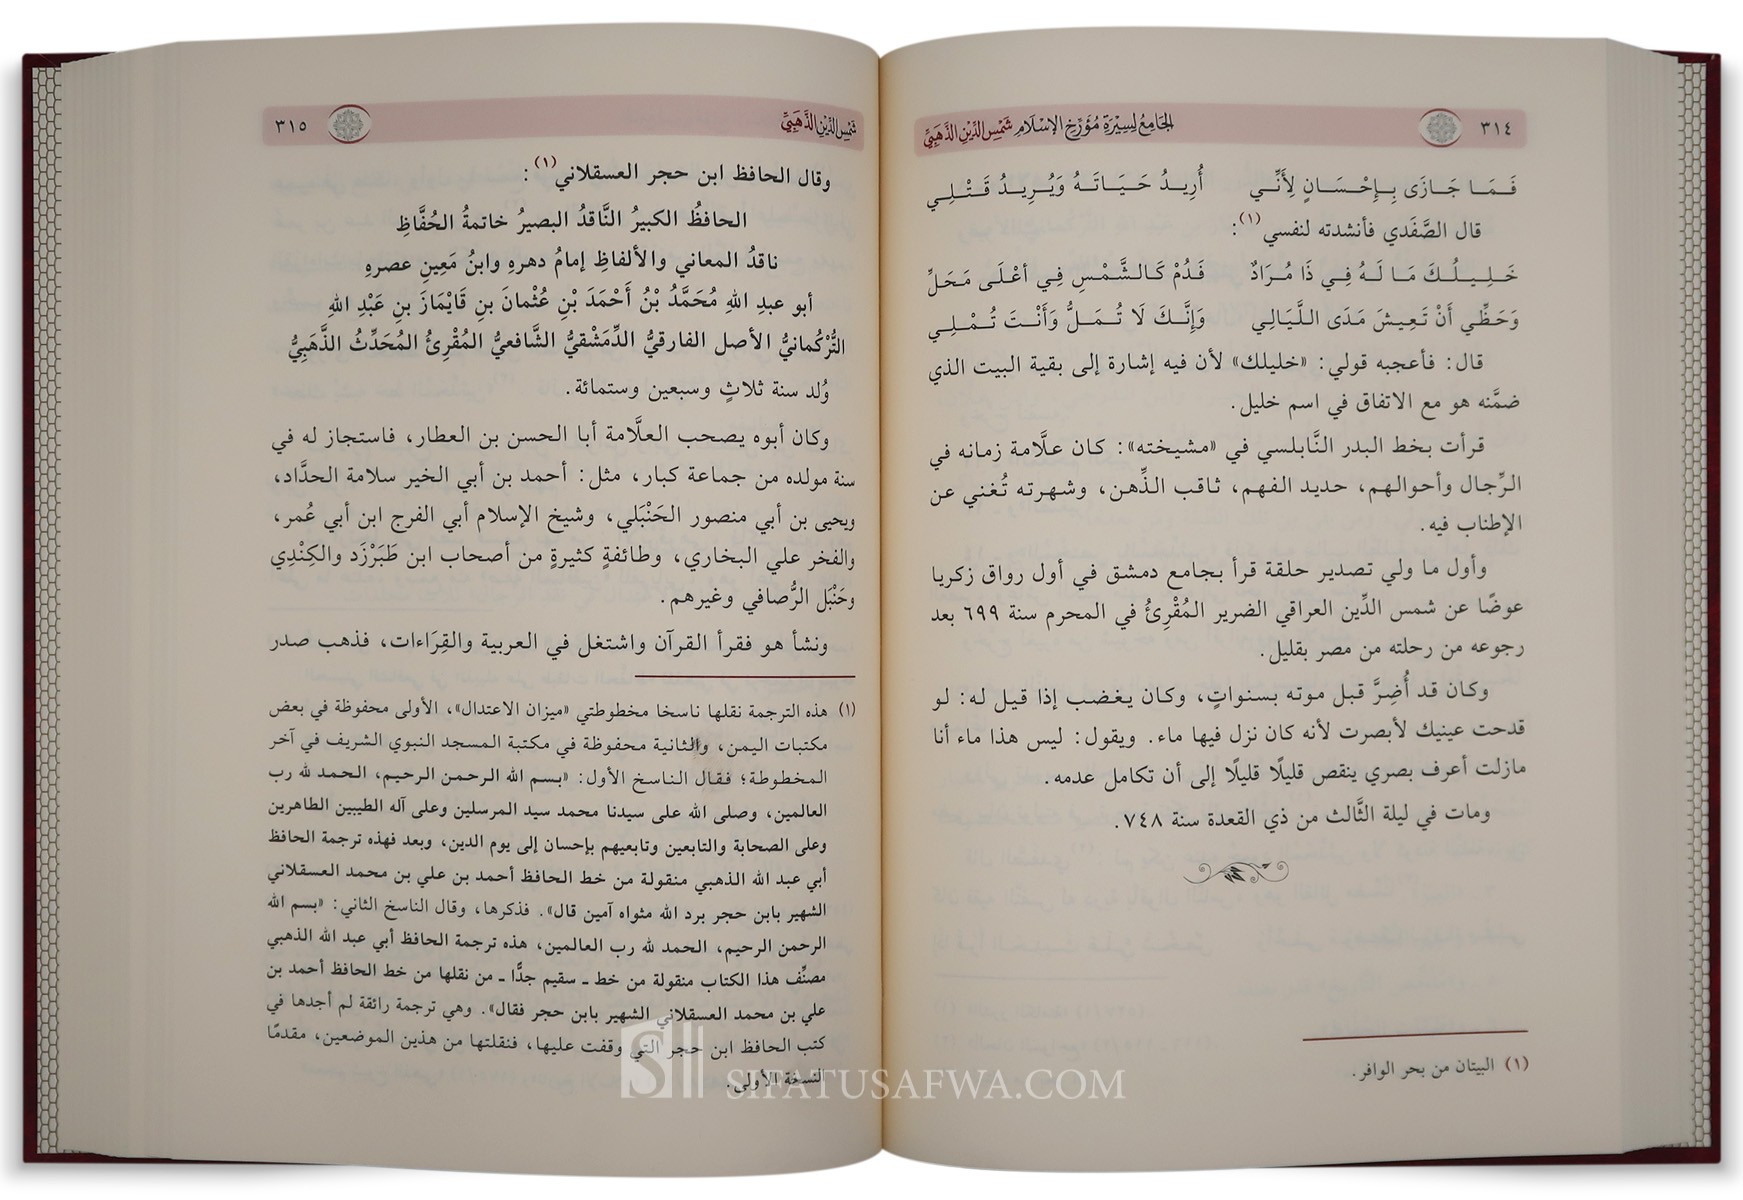 ٣١٤
الجَامِعُ لِسِيرَةِ مُؤَرِّخِ الإِسْلَامِ شَمْسِ الدِّينِ الذَّهَبِيِّ
فَمَا جَازَى بِإِحْسَانٍ لِأَنِّي أُرِيدُ حَيَاتَهُ وَيُرِيدُ قَتْلِي
قال الصَّفَدي فأنشدته لنفسي(١):
خَلِيلُكَ مَا لَهُ فِي ذَا مُرَادٌ فَدُمْ كَالشَّمْسِ فِي أعْلَى مَحَلِّ
وَحَظِّي أَنْ تَعِيشَ مَدَى اللَّيَالِي وَإِنَّكَ لَا تُمَلُّ وَأَنْتَ تُمْلِي
قال: فأعجبه قولي: «خليلك» لأن فيه إشارة إلى بقية البيت الذي
ضمَّنه هو مع الاتفاق في اسم خليل.
قرأت بخط البدر النَّابلسي في «مشيخته»: كان علَّامة زمانه في
الرِّجال وأحوالهم، حديد الفهم، ثاقب الذِّهن، وشهرته تُغني عن
الإطناب فيه.
وأول ما ولي تصدير حلقة قرأ بجامع دمشق في أول رواق زكريا
عوضًا عن شمس الدِّين العراقي الضرير المُقْرِئُ في المحرم سنة ٦٩٩ بعد
رجوعه من رحلته من مصر بقليل.
وكان قد أُضِرَّ قبل موته بسنواتٍ، وكان يغضب إذا قيل له: لو
قدحت عينيك لأبصرت لأنه كان نزل فيها ماء. ويقول: ليس هذا ماء أنا
مازلت أعرف بصري ينقص قليلًا قليلًا إلى أن تكامل عدمه.
ومات في ليلة الثَّالث من ذي القعدة سنة ٧٤٨.
(١) البيتان من بحر الوافر.
شَمْسِ الدِّينِ الذَّهَبِيِّ
٣١٥
وقال الحافظ ابن حجر العسقلاني(١):
الحافظُ الكبيرُ النَّاقدُ البصيرُ خاتمةُ الحُفَّاظِ
ناقدُ المعاني والألفاظِ إمامُ دهرهِ وابنُ مَعِينِ عصرهِ
أبو عبدِ اللهِ مُحَمَّدُ بْنُ أَحْمَدَ بْنِ عُثْمانَ بنِ قَايْمَازَ بنِ عَبْدِ اللهِ
التُّرْكمانيُّ الأصل الفارقيُّ الدِّمَشْقيُّ الشَّافعيُّ المُقْرِئُ المُحَدِّثُ الذَّهَبِيُّ
وُلد سنة ثلاثٍ وسبعين وستمائة.
وكان أبوه يصحب العلَّامة أبا الحسن بن العطار، فاستجاز له في
سنة مولده من جماعة كبار، مثل: أحمد بن أبي الخير سلامة الحدَّاد،
ويحيى بن أبي منصور الحَنْبَلي، وشيخ الإسلام أبي الفرج ابن أبي عُمر،
والفخر علي البخاري، وطائفةٍ كثيرةٍ من أصحاب ابن طَبَرْزَد والكِنْدِي
وحَنْبَل الرُّصافي وغيرهم.
ونشأ هو فقرأ القرآن واشتغل في العربية والقِرَاءات، فذهب صدر
(١) هذه الترجمة نقلها ناسخا مخطوطتي «ميزان الاعتدال»، الأولى محفوظة في بعض
مكتبات اليمن، والثانية محفوظة في مكتبة المسجد النبوي الشريف في آخر
المخطوطة؛ فقال الناسخ الأول: «بسم الله الرحمن الرحيم، الحمد لله رب
العالمين، وصلى الله على سيدنا محمد سيد المرسلين وعلى آله الطيبين الطاهرين
وعلى الصحابة والتابعين وتابعيهم بإحسان إلى يوم الدين، وبعد فهذه ترجمة الحافظ
أبي عبد الله الذهبي منقولة من خط الحافظ أحمد بن علي بن محمد العسقلاني
الشهير بابن حجر برد الله مثواه آمين قال». فذكرها، وقال الناسخ الثاني: «بسم الله
الرحمن الرحيم، الحمد لله رب العالمين، هذه ترجمة الحافظ أبي عبد الله الذهبي
مصنِّف هذا الكتاب منقولة من خط ـ سقيم جدًّا ـ من نقلها من خط الحافظ أحمد بن
علي بن محمد العسقلاني الشهير بابن حجر فقال». وهي ترجمة رائقة لم أجدها في
كتب الحافظ ابن حجر التي وقفت عليها، فنقلتها من هذين الموضعين، مقدمًا
النسخة الأولى.
SIFATUSAFWA.COM